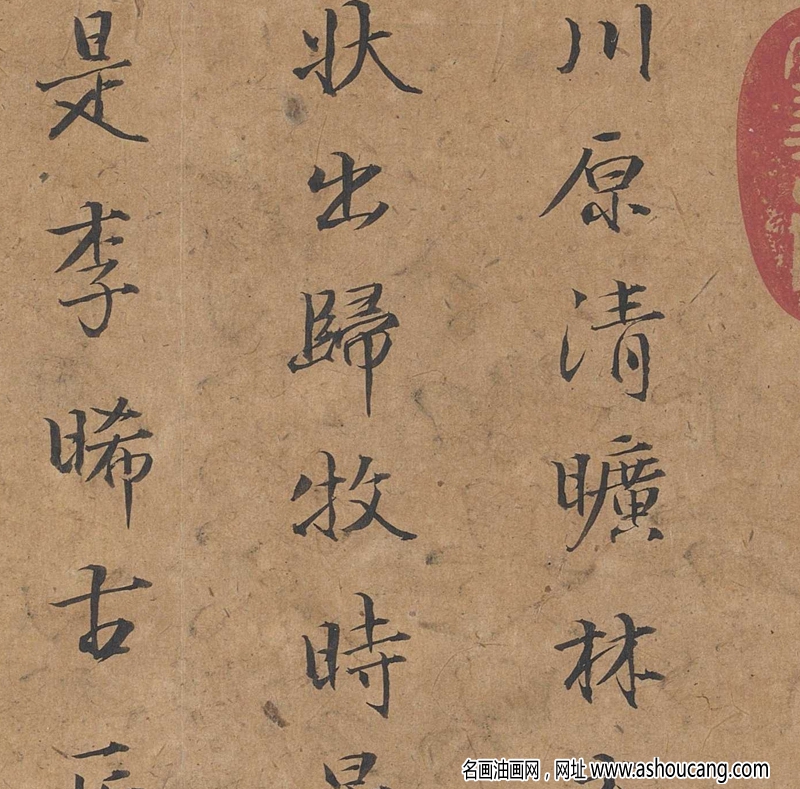 川原清曠林
狀出歸牧時
是李晞古
名画油画网，网址 www.ashoucang.com